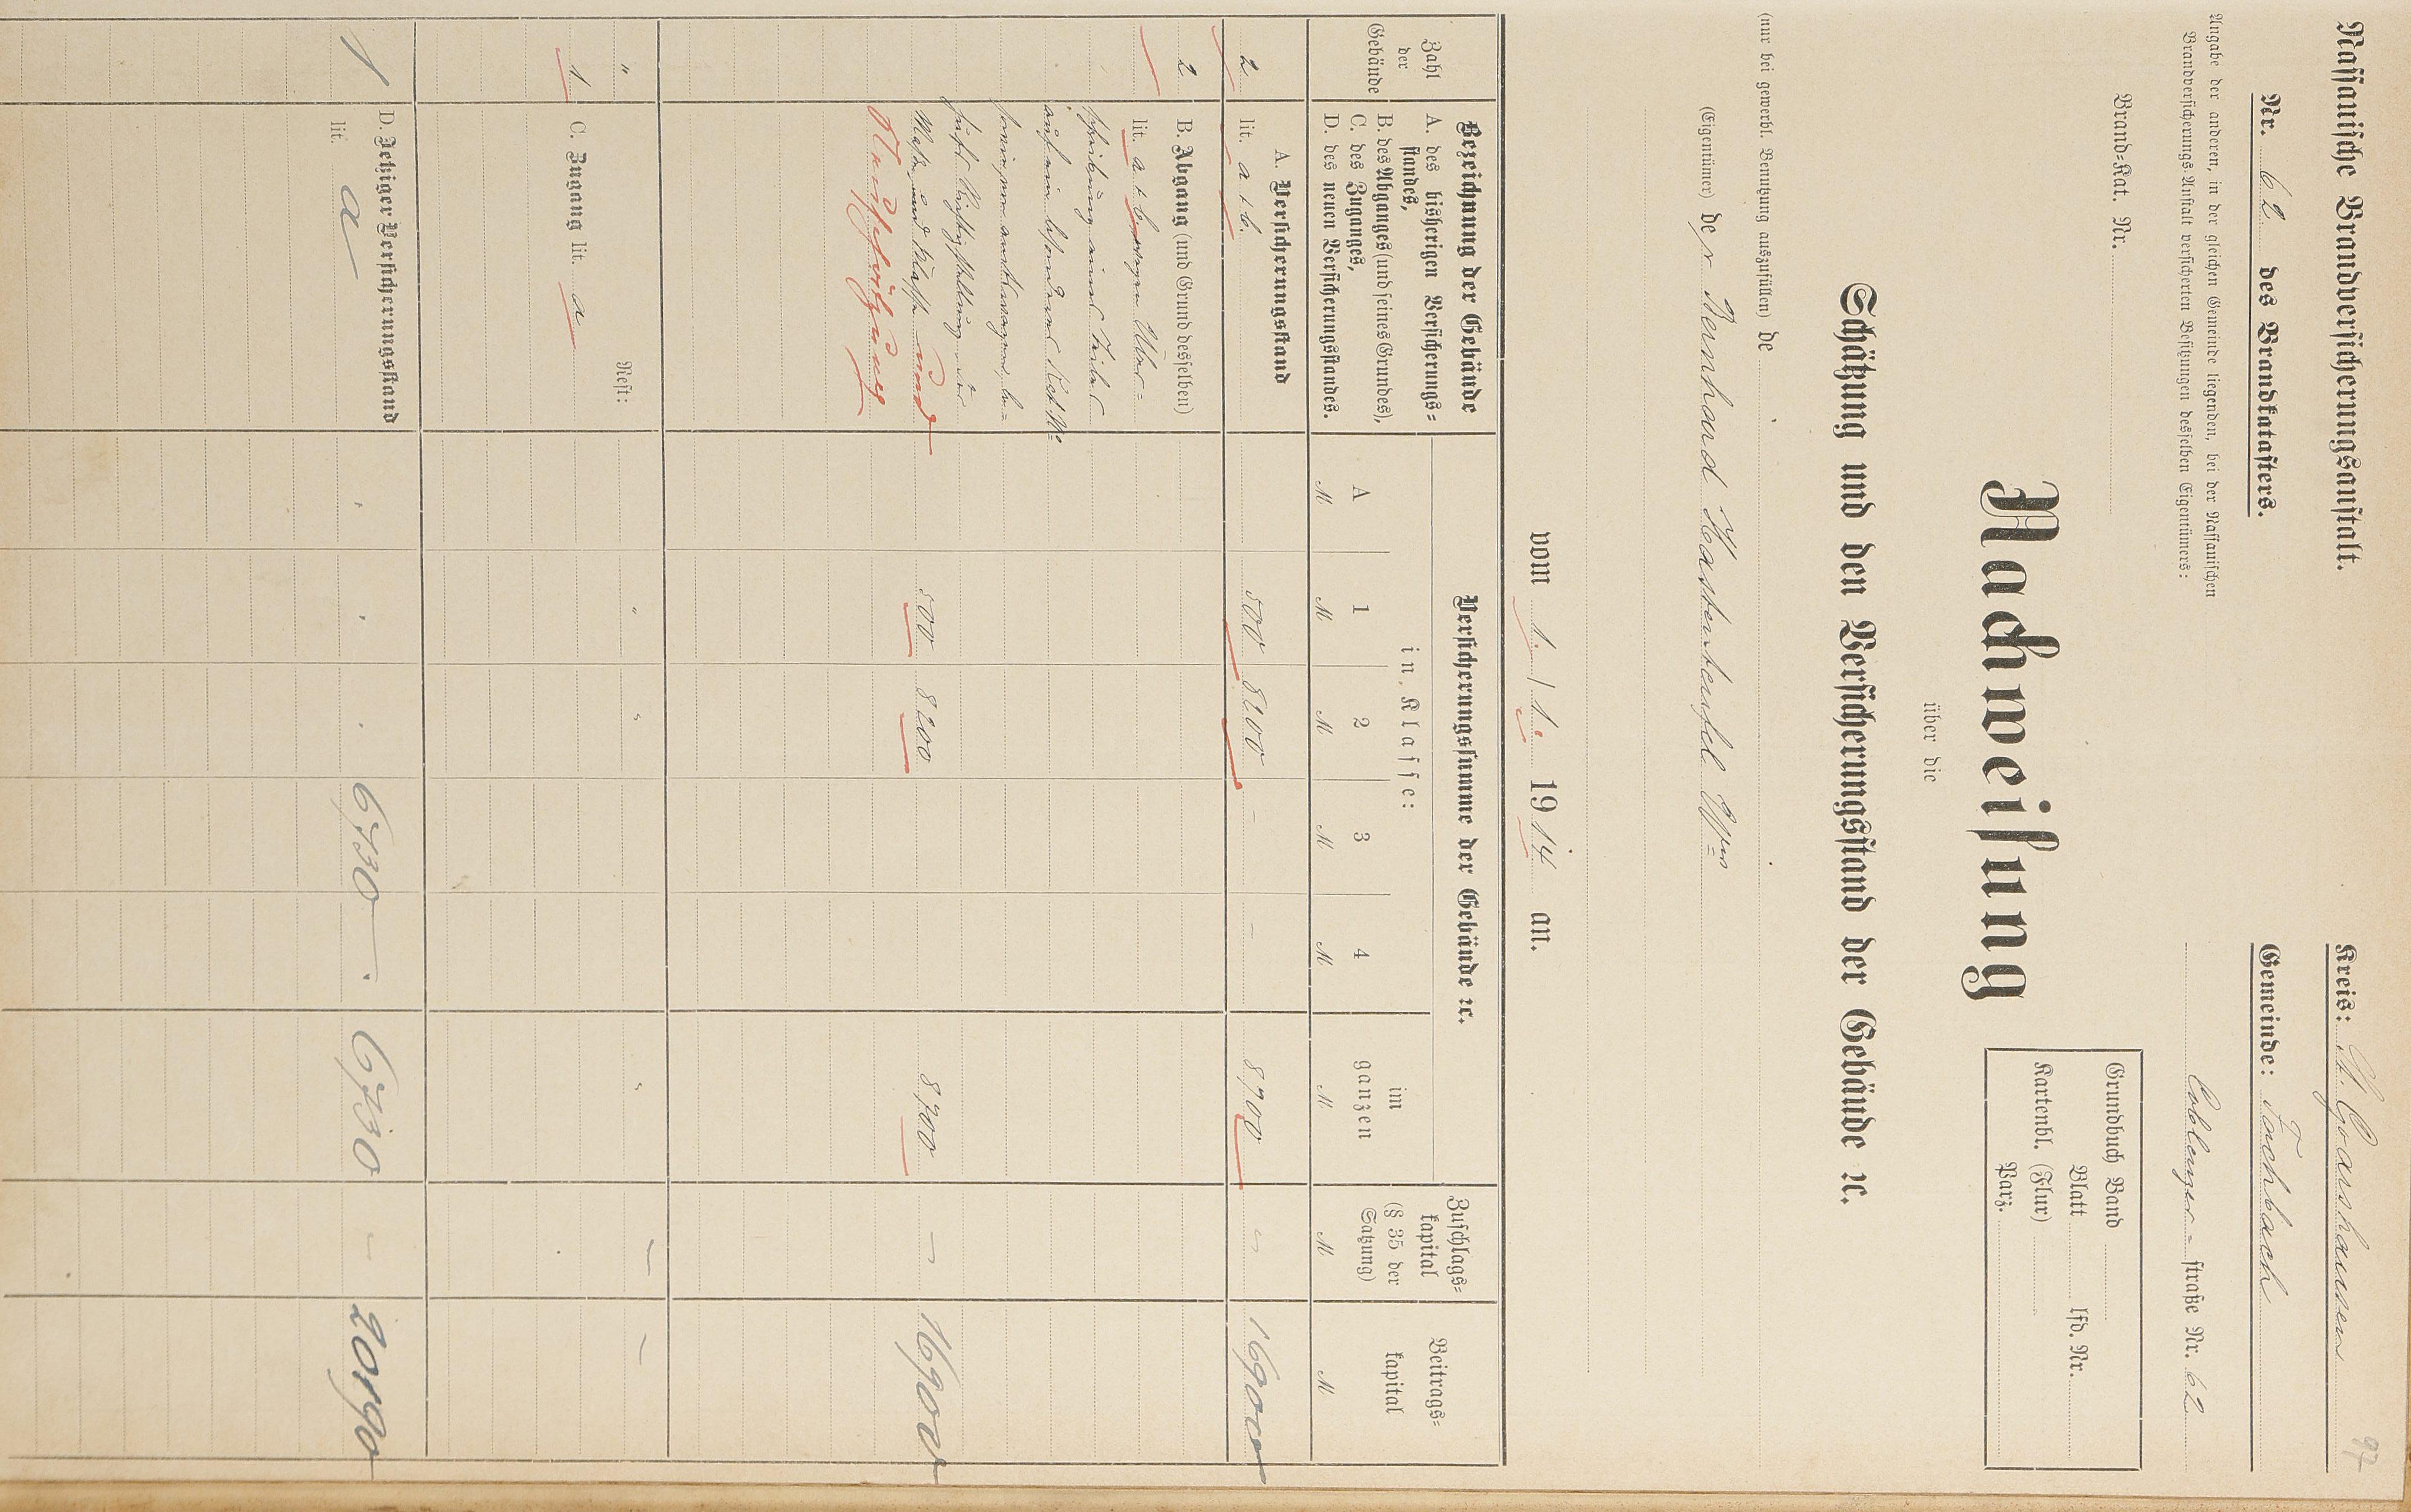 97
Nassauische Brandversicherungsanstalt.
Kreis: St. Goarshausen
Nr. 62 des Brandkatasters.
Gemeinde: Fachbach
Angabe der anderen, in der gleichen Gemeinde liegenden, bei der Nassauischen
Brandversicherungs-Anstalt versicherten Besitzungen desselben Eigentümers:
Coblenzer-straße Nr. 62
Brand-Kat. Nr.
Grundbuch Band
Blatt lfd. Nr.
Kartenbl. (Flur)
Parz.
Nachweisung
über die
Schätzung und den Versicherungsstand der Gebäude ꝛc.
(nur bei gewerbl. Benutzung auszufüllen) de
(Eigentümer) der Bernhard Wwe
vom 1. / 1. 1914 an.
Zahl der Gebäude
Bezeichnung der Gebäude
A. des bisherigen Versicherungs-
standes,
B. des Abganges (und seines Grundes),
C. des Zuganges,
D. des neuen Versicherungsstandes.
Versicherungssumme der Gebäude ꝛc.
in Klasse:
A 1 2 3 4 im ganzen
M M M M M M
Zuschlags-
kapital
(§ 35 der
Satzung)
M
Beitrags-
kapital
M
A. Versicherungsstand
2 lit. a + b. 500 8200 – – 8700 – 16900
B. Abgang (und Grund desselben)
2 lit. a + b wegen
und
500 8200 8700 – 16900
" Rest: " " " – –
1 C. Zugang lit. a
D. Jetziger Versicherungsstand
1 lit. a 6730 – 6730 – 20190